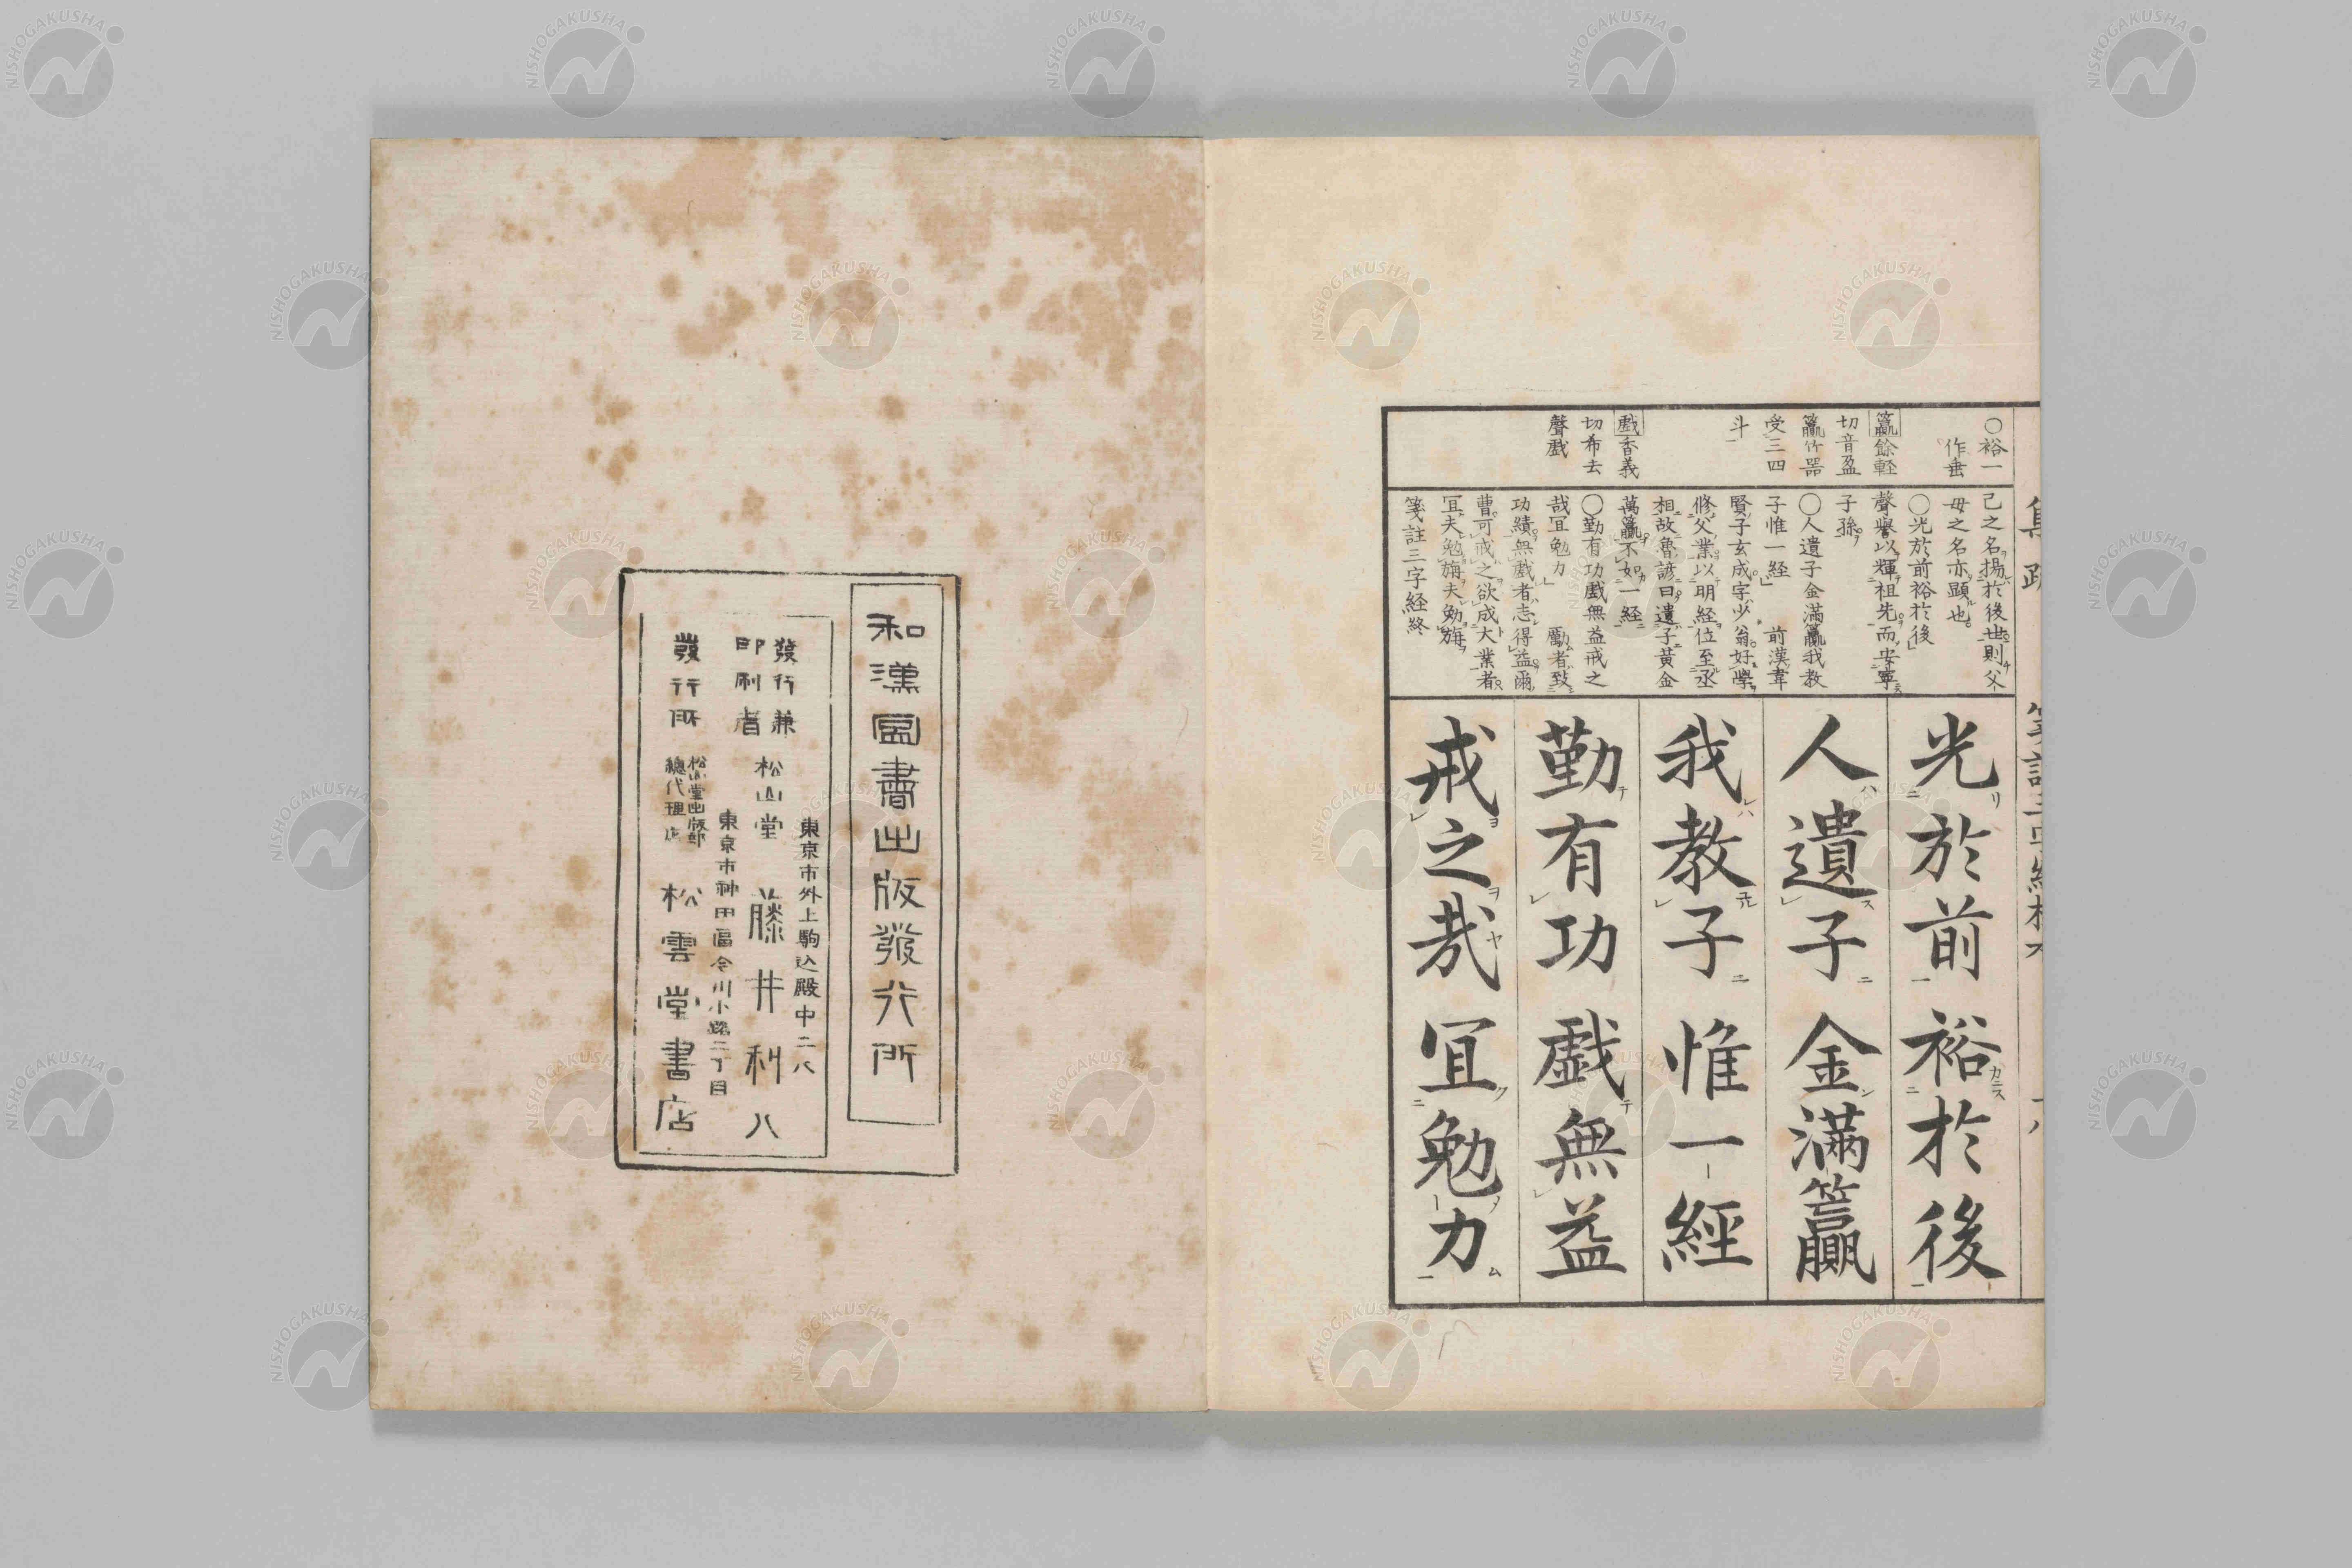 集疏
○裕一
作垂
籯餘軽
切音盈
籯竹器
受三四
斗
戲香義
切希去
聲戲
己之名揚於後世則父
母之名亦顕也
○光於前裕於後
聲譽以輝祖先而安寧
子孫
○人遺子金滿籯我教
子惟一経 前漢韋
賢子玄成字少翁好學
修父業以明経位至丞
相故魯諺曰遺子黄金
萬籯不如一経
○勤有功戲無益戒之
哉冝勉力 勵者致
功績無戲者志得益爾
曹可戒之欲成大業者
冝夫勉旃夫勉旃
箋註三字経終
光於前裕於後
人遺子金滿籯
我教子惟一經
勤有功戲無益
戒之哉冝勉力
和漢圖書出版發行所
東京市外上駒込殿中二八
發行兼
印刷者
松山堂 藤井利八
東京市神田區今川小路二丁目
發行所
松山堂出版部
總代理店
松雲堂書店
NISHOGAKUSHA